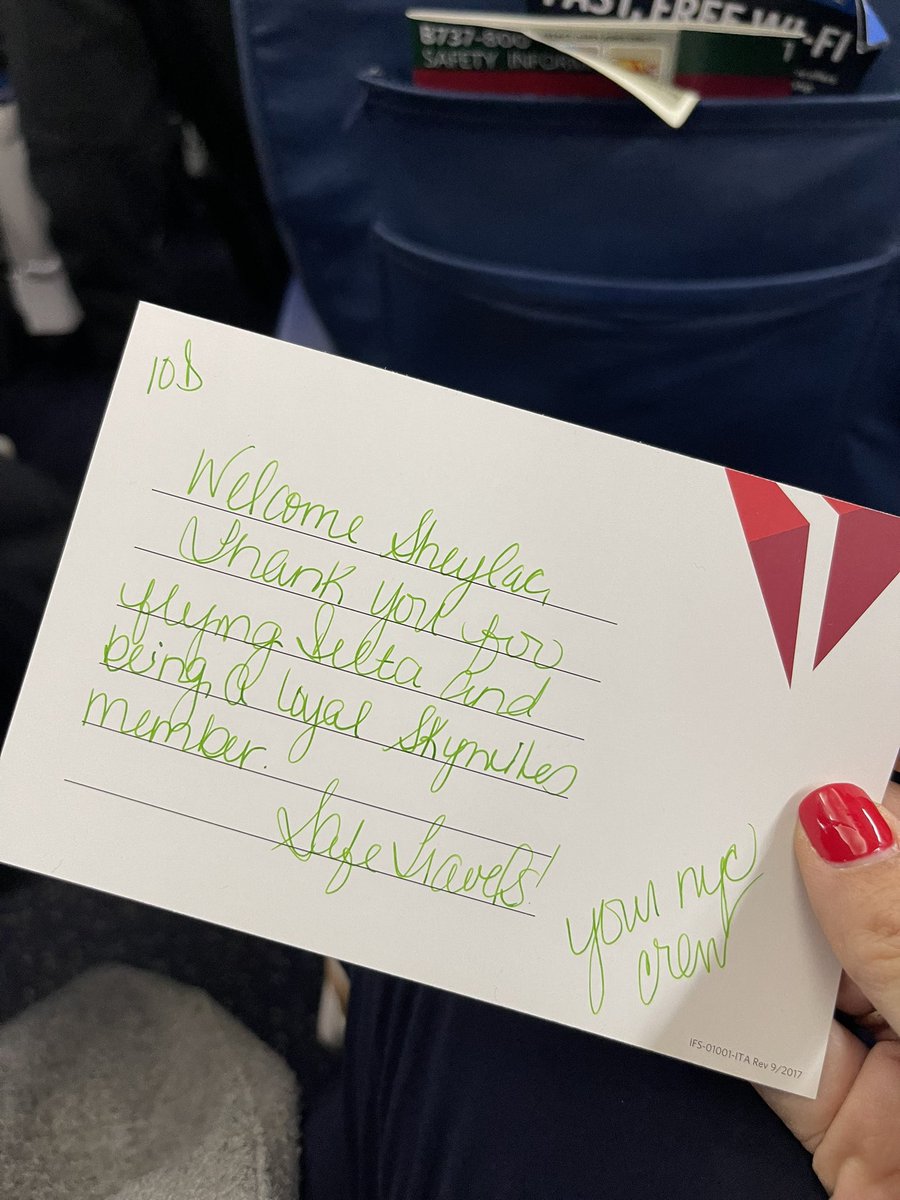 FAST, FREE WI-FI
B737-800
SAFETY INFOR
10D
Welcome Sheyla,
Thank you for
flying Delta and
being a loyal Skymiles
member.
Safe Travels!
your nyc
crew
IFS-01001-ITA Rev 9/2017